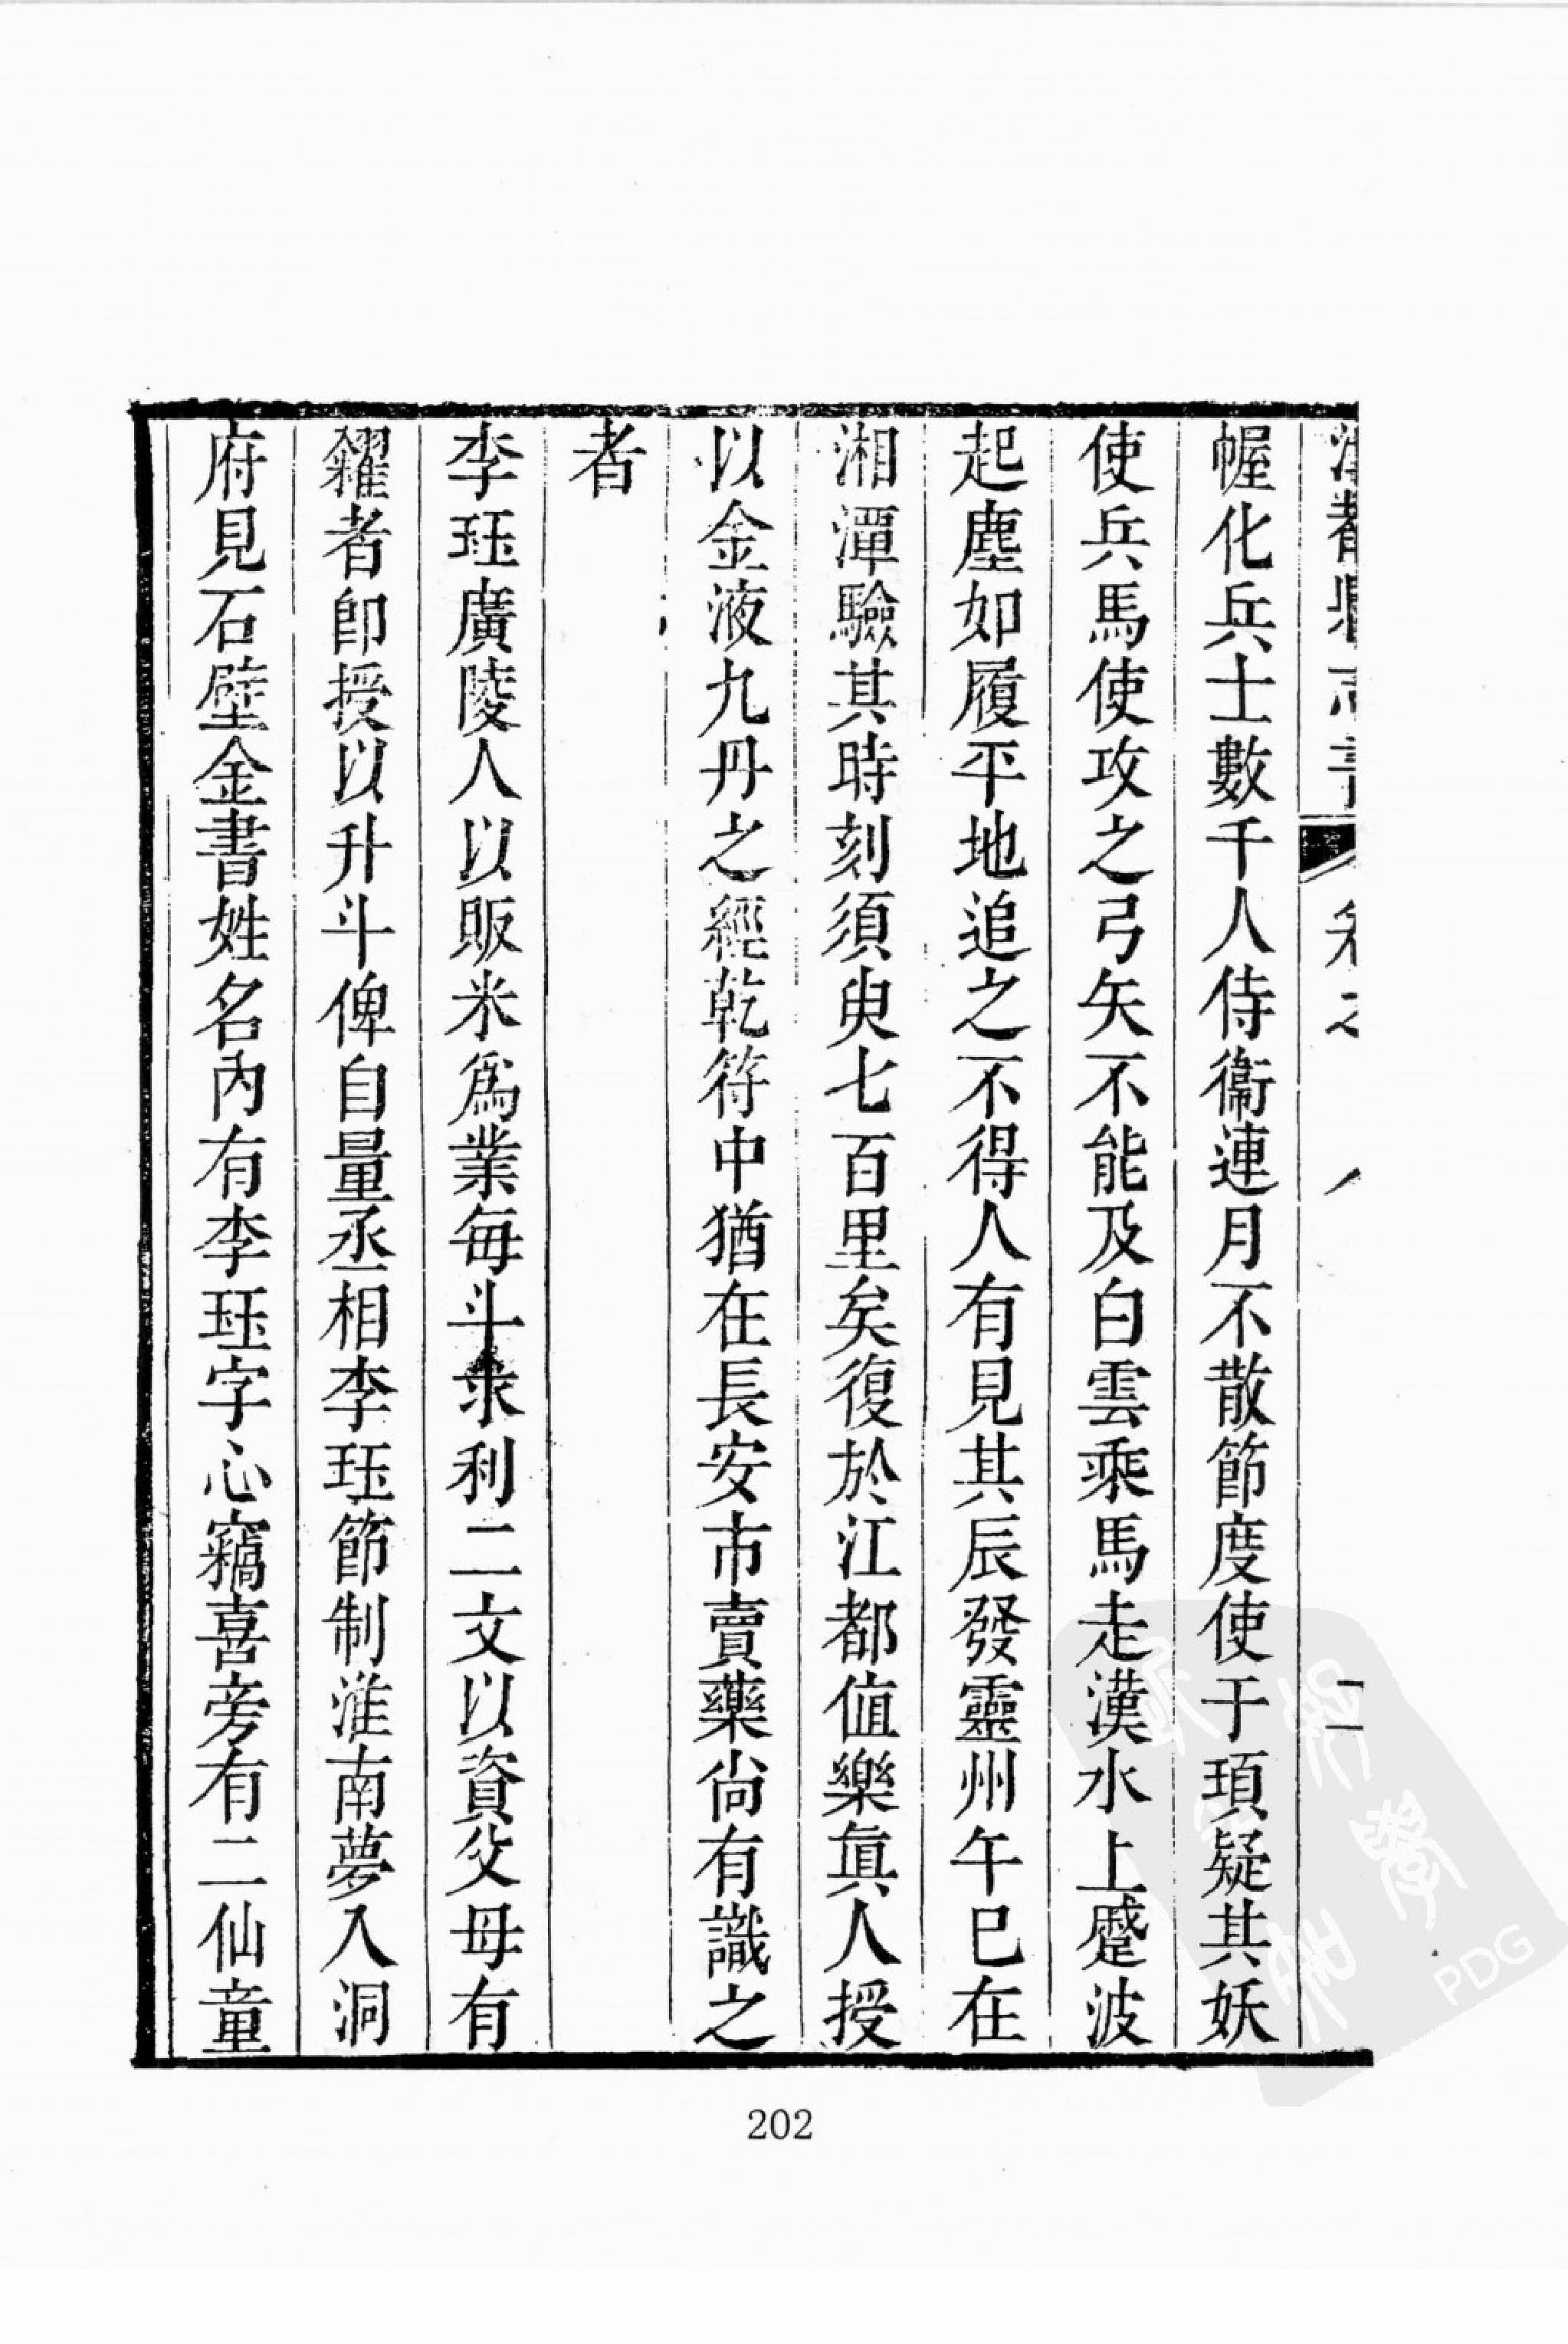 幄化兵士數千人侍衞連月不散節度使于頊疑其妖
使兵馬使攻之弓矢不能及白雲乘馬走漢水上蹙波
起塵如履平地追之不得人有見其辰發靈州午已在
湘潭驗其時刻須臾七百里矣復於江都值樂眞人授
以金液九丹之經乾符中猶在長安市賣藥尙有識之
者
李珏廣陵人以販米爲業每斗求利二文以資父母有
糴者卽授以升斗俾自量丞相李珏節制淮南夢入洞
府見石壁金書姓名內有李珏字心竊喜旁有二仙童
202
PDG